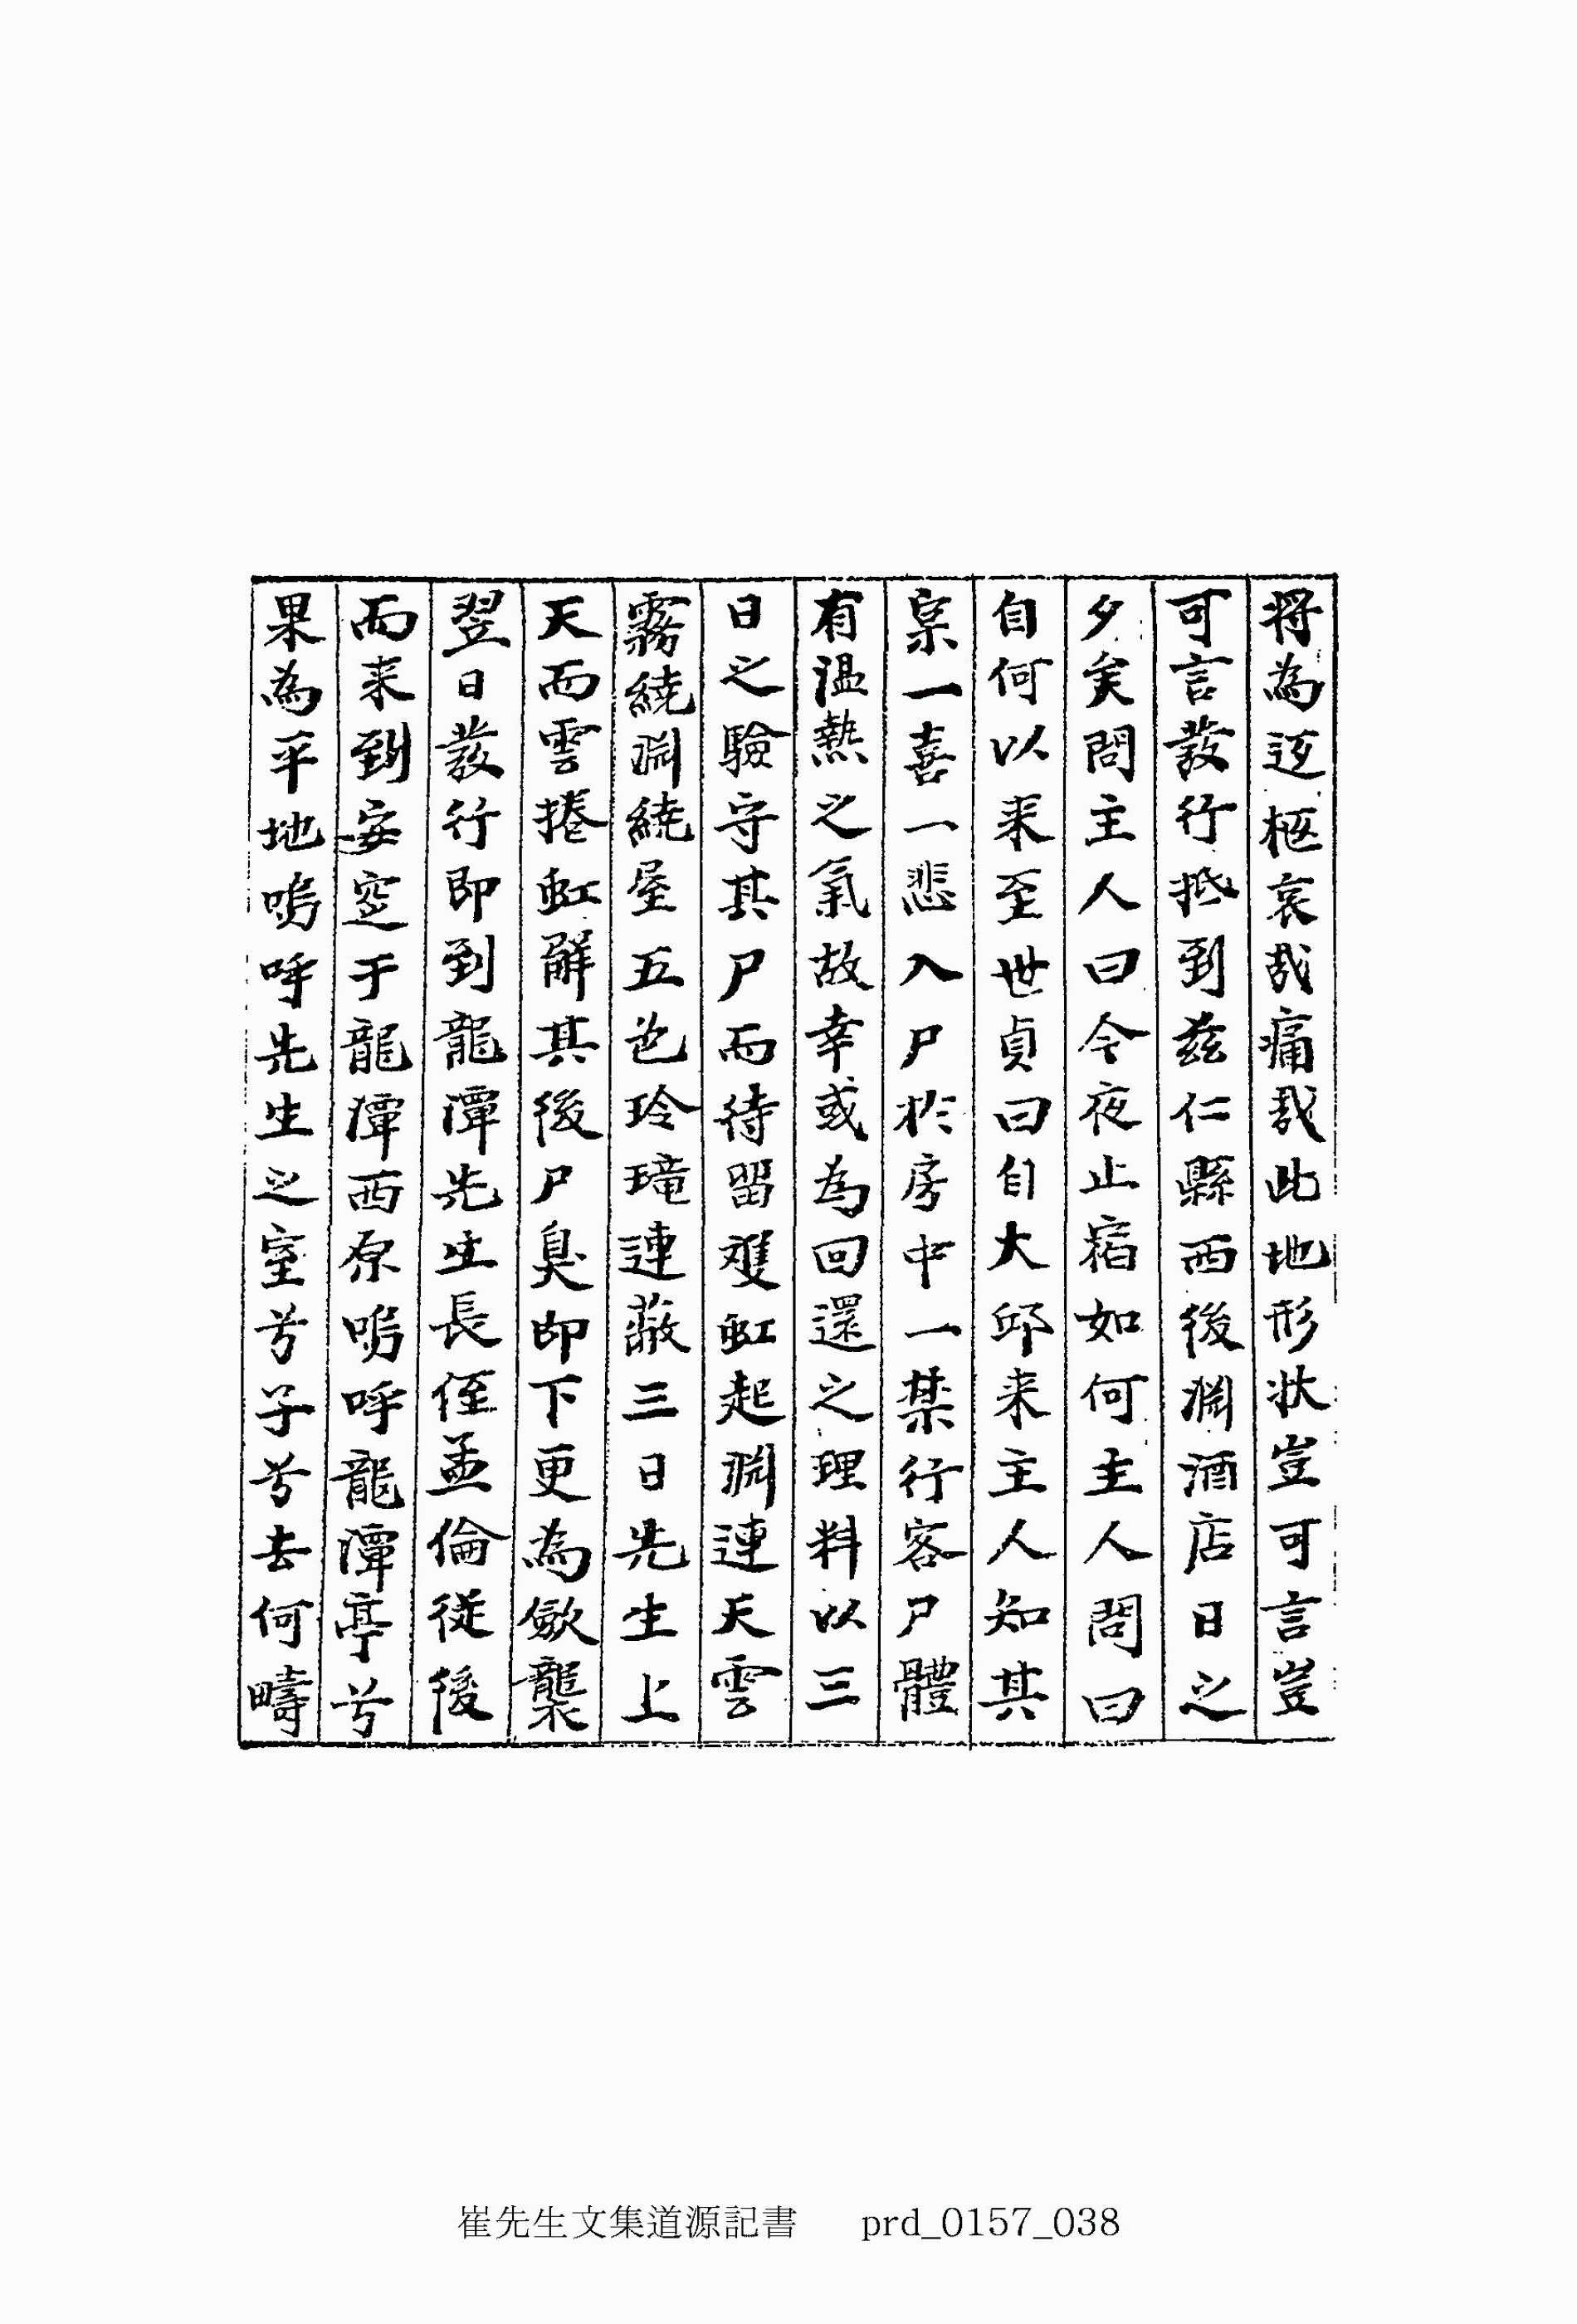 将為返柩哀哉痛哉此地形状豈可言豈
可言發行抵到玆仁縣西後淵酒店日之
夕矣問主人曰今夜止宿如何主人問曰
自何以来至世貞曰自大邱来主人知其
梟一喜一悲入尸於房中一禁行客尸體
有温熱之氣故幸或為回還之理料以三
日之驗守其尸而待留雙虹起淵連天雲
霧繞淵繞屋五色玲瓏連蔽三日先生上
天而雲捲虹解其後尸臭卽下更為斂襲
翌日發行即到龍潭先生長侄孟倫従後
而来到安窆于龍潭西原嗚呼龍潭亭兮
果為平地嗚呼先生之室兮子兮去何疇
崔先生文集道源記書 prd_0157_038